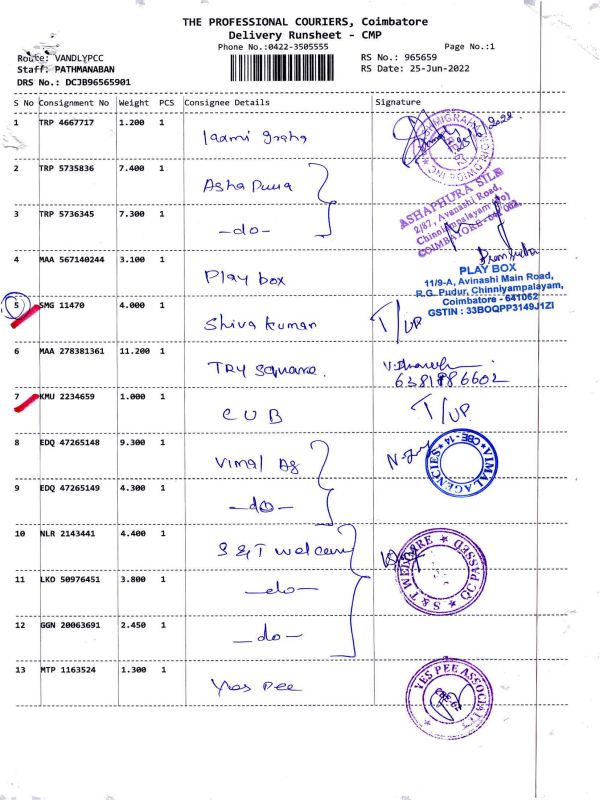 THE PROFESSIONAL COURIERS, Coimbatore
Delivery Runsheet - CMP
Phone No.:0422-3505555
Page No.:1
Route: VANDLYPCC
RS No.: 965659
Staff: PATHMANABAN
RS Date: 25-Jun-2022
DRS No.: DCJB96565901
S No Consignment No Weight PCS Consignee Details Signature
1 TRP 4667717 1.200 1 laxmi graha
2 TRP 5735836 7.400 1 Asha Pura
ASHAPHURA SILK
2/87, Avanashi Road,
Chinniyampalayam (Po)
COIMBATORE-641 062.
3 TRP 5736345 7.300 1 -do-
4 MAA 567140244 3.100 1 Play box
PLAY BOX
11/9-A, Avinashi Main Road,
R.G. Pudur, Chinniyampalayam,
Coimbatore - 641062
GSTIN : 33BOQPP3149J1ZI
5 SMG 11470 4.000 1 Shiva kumar T/UP
6 MAA 278381361 11.200 1 TRY Square.
7 KMU 2234659 1.000 1 CUB T/UP
8 EDQ 47265148 9.300 1 Vimal Ag
VIMAL AGENCIES CBE-14
9 EDQ 47265149 4.300 1 -do-
10 NLR 2143441 4.400 1 S & T welcare
S & T WELCARE QC PASSED
11 LKO 50976451 3.800 1 -do-
12 GGN 20063691 2.450 1 -do-
13 MTP 1163524 1.300 1 Yes Pee
YES PEE ASSOCIATES